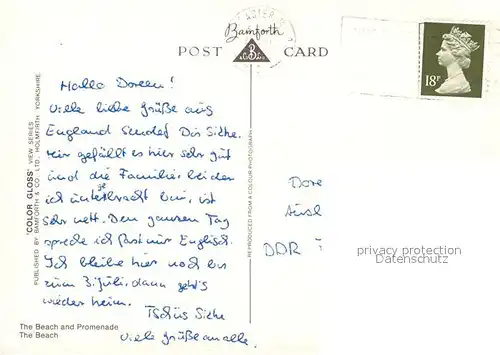 Bamforth
POST CARD
B
& Co Ld
18P
Hallo Doreen!
Viele liebe Grüße aus
England sendet Dir Silke.
Mir gefällt es hier sehr gut
und die Familie, bei der
ich untergebracht bin, ist
sehr nett. Den ganzen Tag
spreche ich fast nur Englisch.
Ich bleibe hier noch bis
zum 3. Juli, dann geht's
wieder heim.
Tschüs Silke
Viele Grüße an alle.
Dore
DDR
privacy protection
Datenschutz
'COLOR GLOSS' VIEW SERIES
PUBLISHED BY BAMFORTH & CO., LTD., HOLMFIRTH YORKSHIRE.
REPRODUCED FROM A COLOUR PHOTOGRAPH
The Beach and Promenade
The Beach